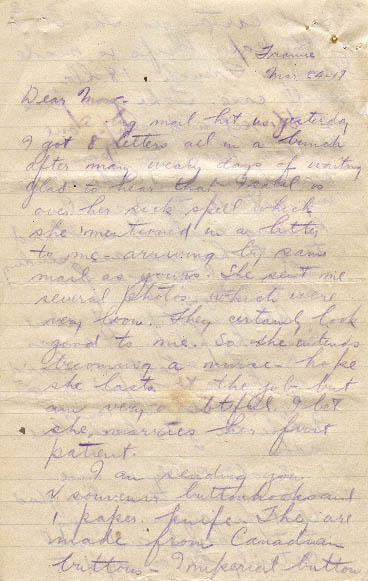 France
Mar 24-17
Dear Mom-
A big mail hit us yesterday
I got 8 letters all in a bunch
after many weary days of waiting
glad to hear that Isabel is
over her sick spell which
she mentioned in a letter
to me - arriving by same
mail as yours. She sent me
several photos which were
very bon. They certainly look
good to me. So she intends
becoming a nurse - hope
she lasts at the job but
am very doubtful. I bet
she marries her first
patient.
I am sending you
4 souvenir buttonhooks and
1 paper knife. They are
made from Canadian
buttons - Imperial button